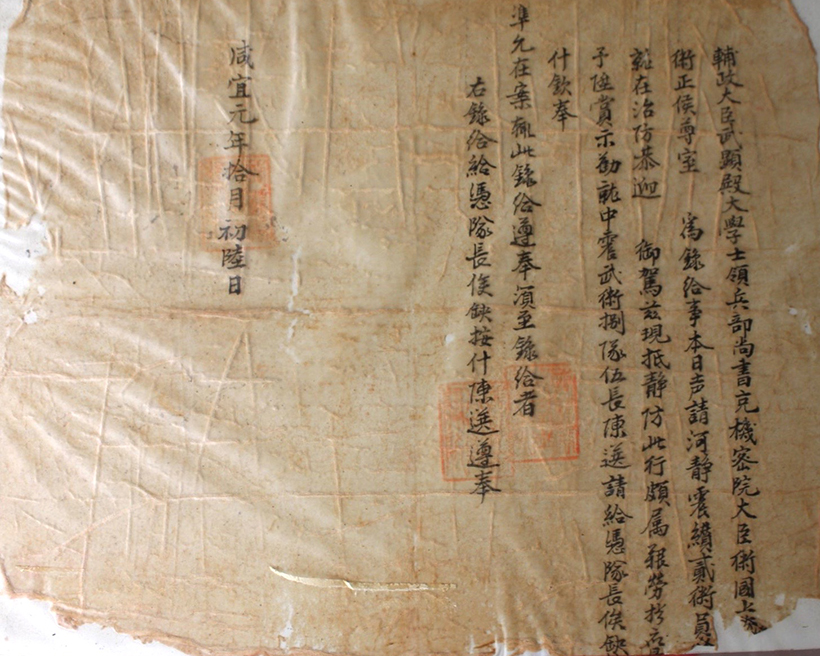 輔政大臣武顯殿大學士領兵部尚書充機密院大臣衛國上
衛正侯尊室　為錄給事本日声請河靜震績貳衛員
在治防恭迎　御駕茲現抵靜防此行頗属艱勞於
予陞賞示勸就中震武衛捌隊伍長陳送請給憑隊長俟缺
什欽奉
準允在案輒此錄給遵奉須至錄給者
右錄給給憑隊長俟缺按什陳送遵奉
咸宜元年拾月初陸日